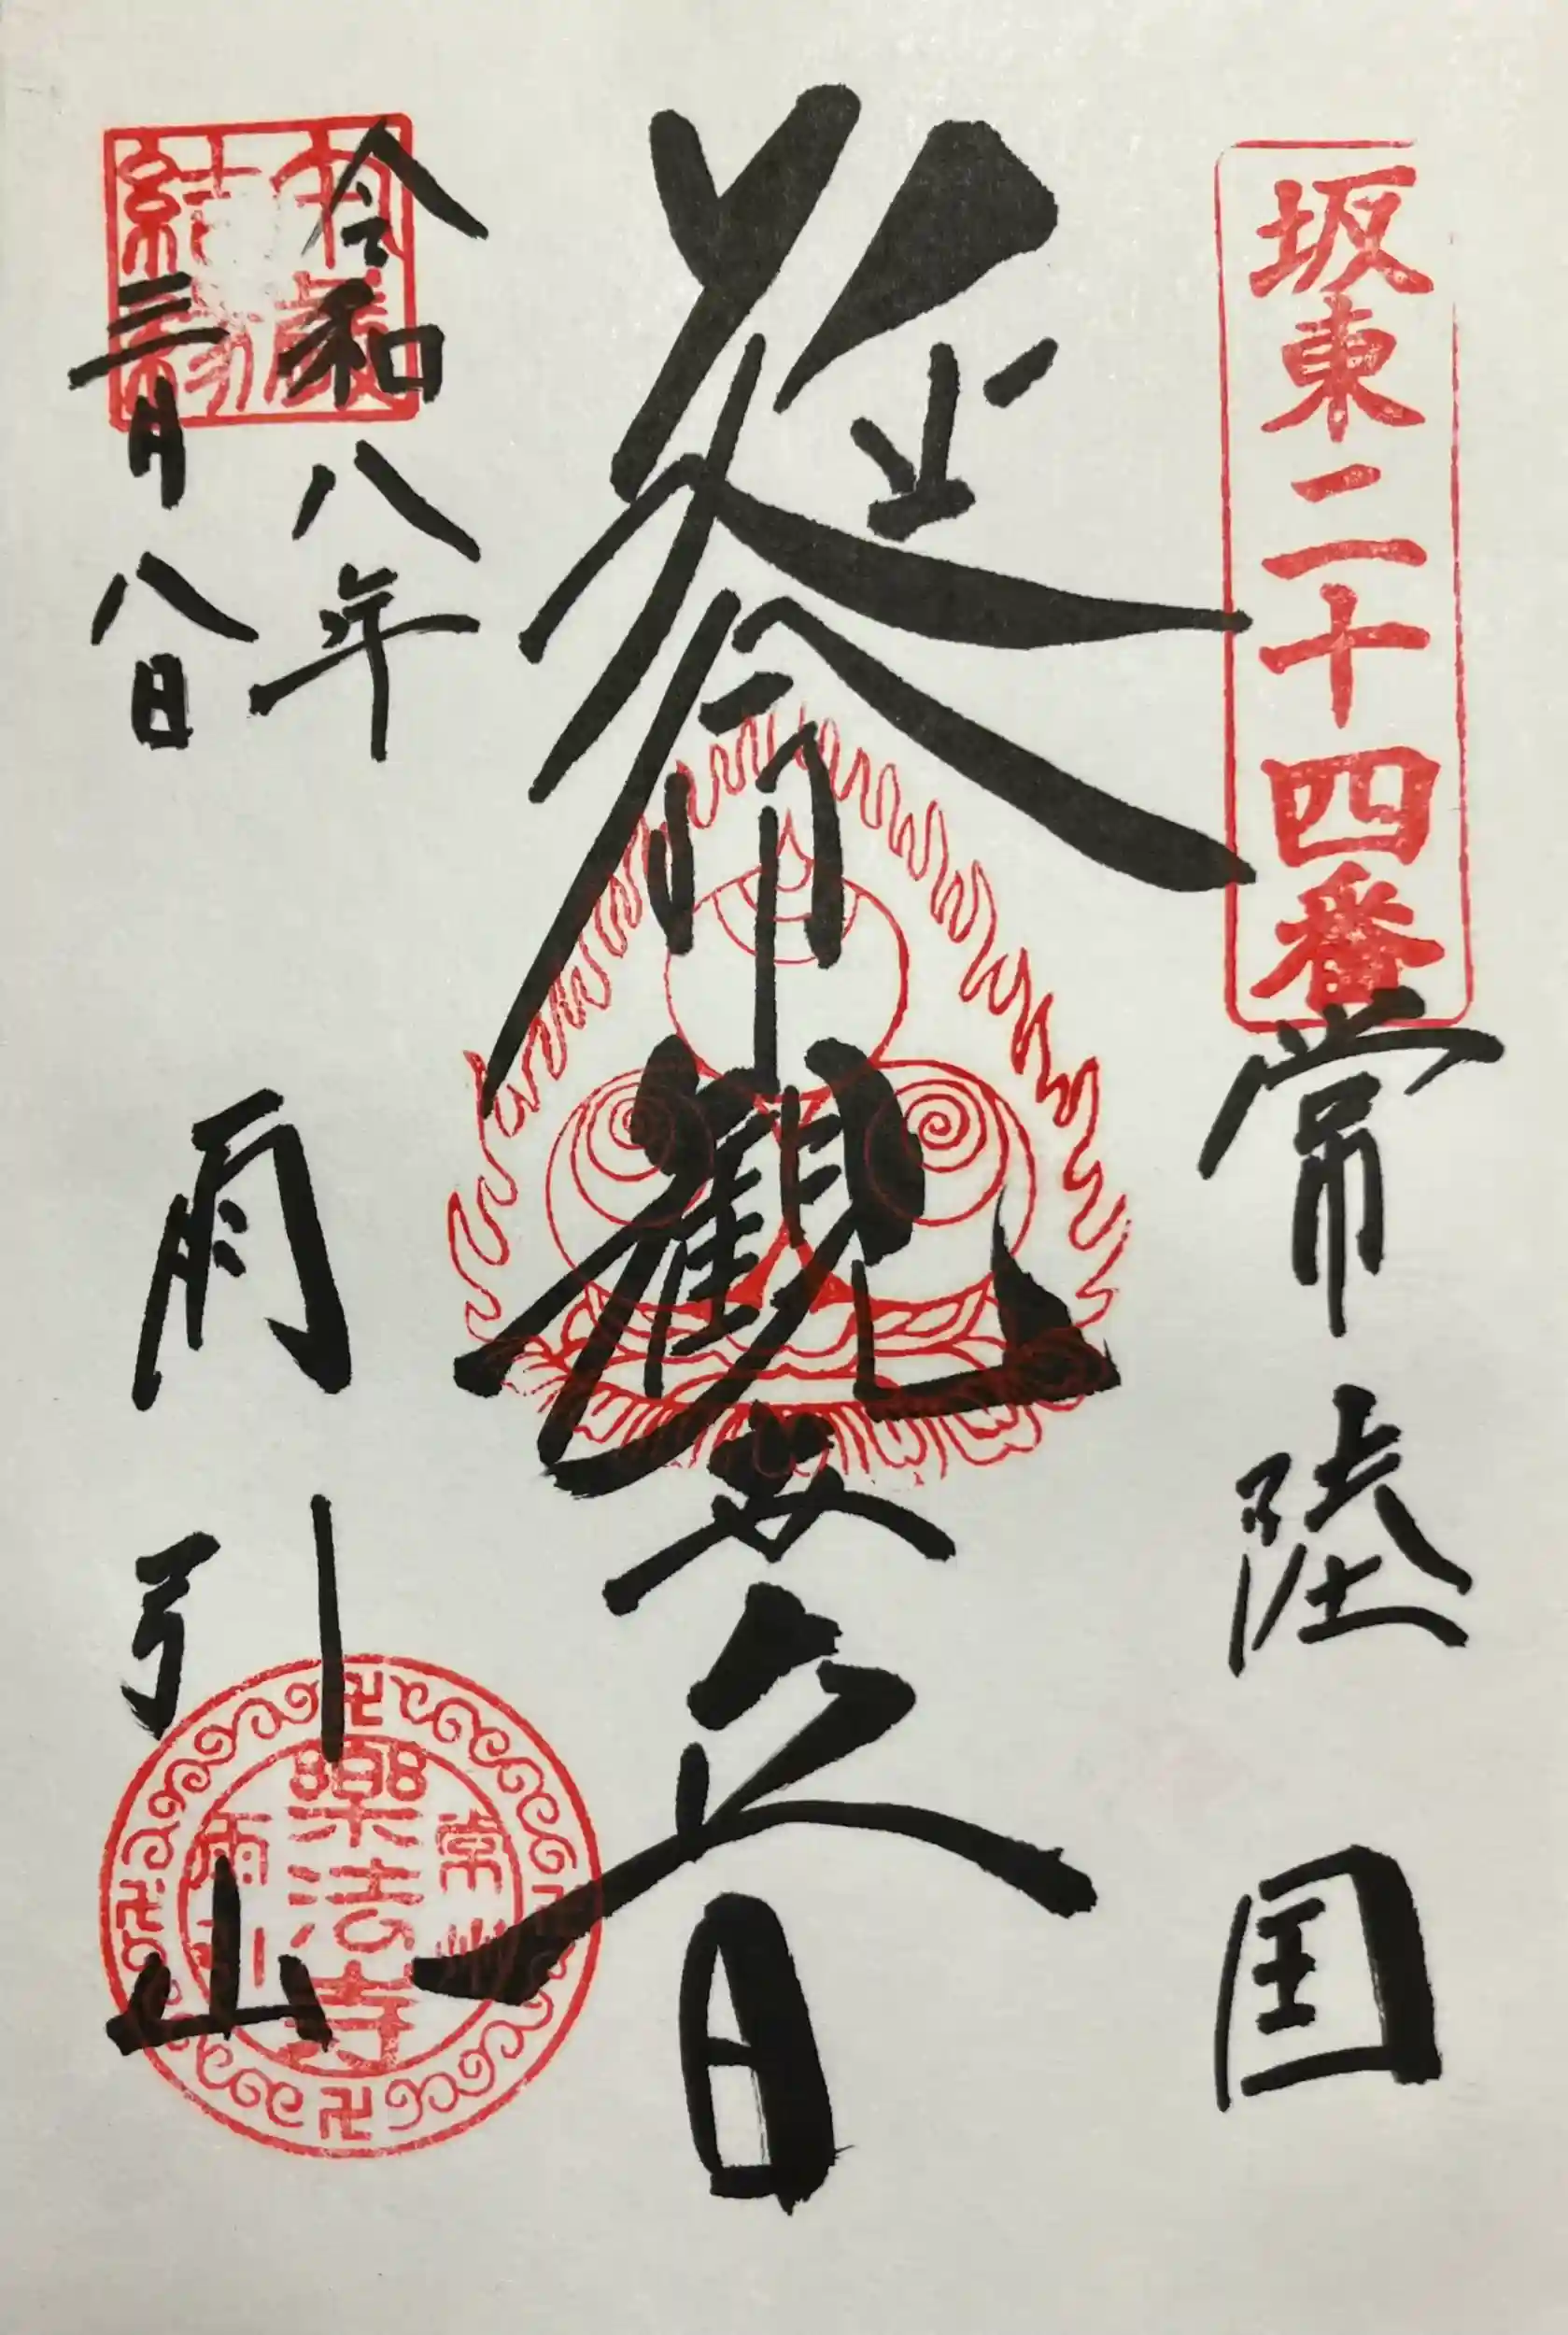 坂東二十四番
常陸国
延命観世音
令和八年
三月八日
雨引山
常州
樂法寺
雨引